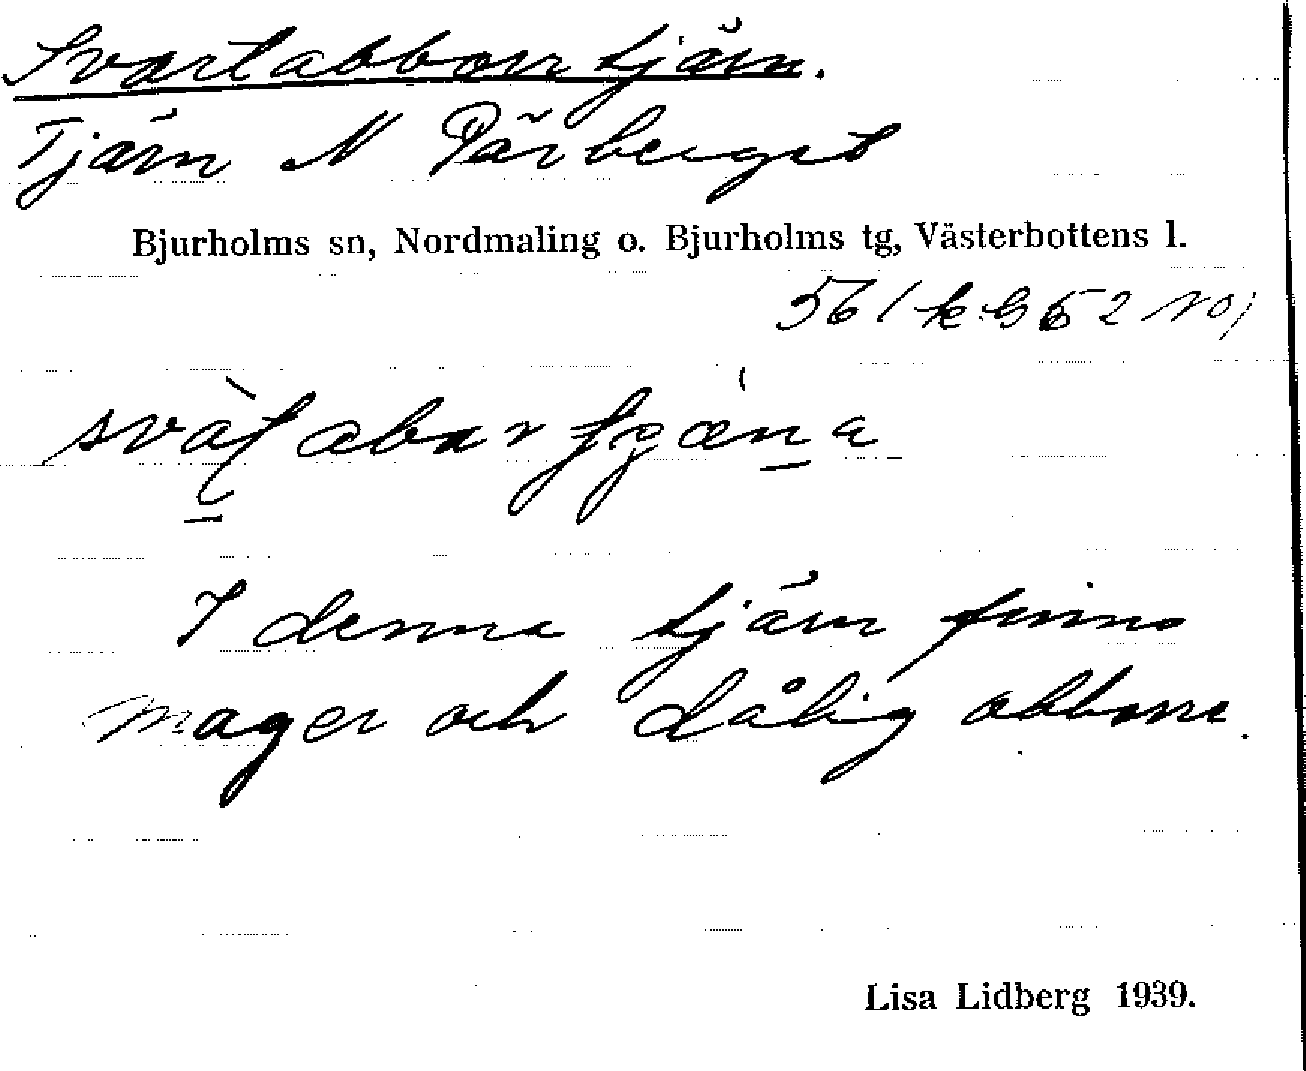 Svartabborrtjärn.
Tjärn N Pärberget
Bjurholms sn, Nordmaling o. Bjurholms tg, Västerbottens l.
561
I denna tjärn finns
mager och dålig abborre.
Lisa Lidberg 1939.